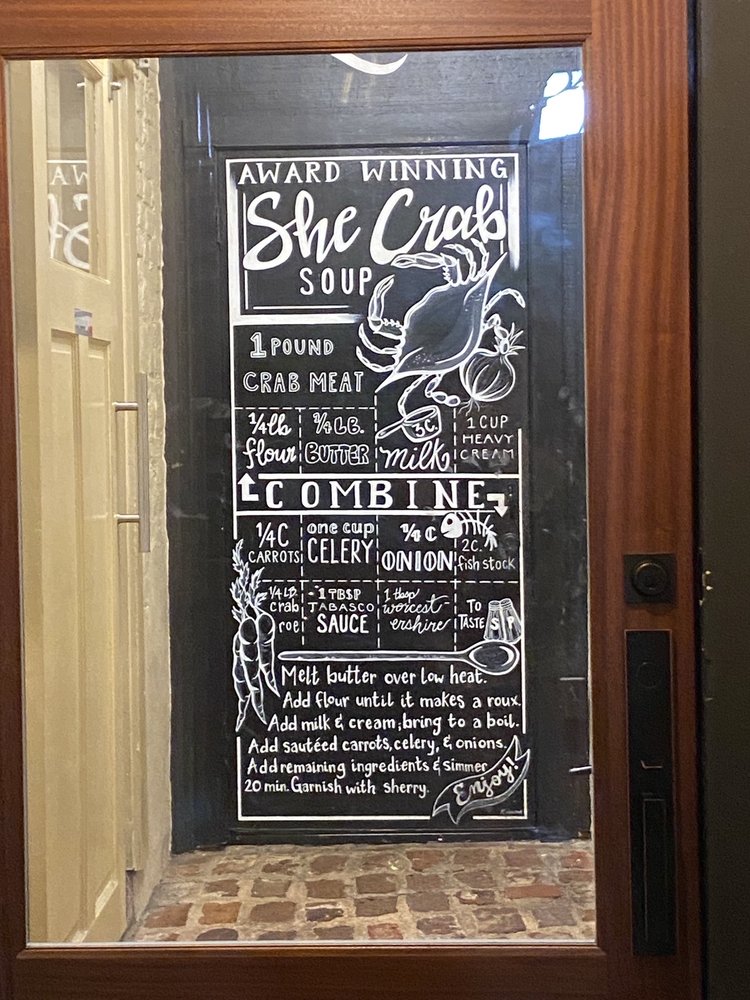 AWARD WINNING
She Crab
SOUP
1 POUND
CRAB MEAT
1/4 lb
flour
1/4 LB.
BUTTER
3C.
milk
1 CUP
HEAVY
CREAM
COMBINE
1/4 C
CARROTS
one cup
CELERY
C
ONION
2C.
fish stock
1/4 LB.
crab
roe
1 TBSP
TABASCO
SAUCE
1 tbsp
worcest-
ershire
TO
TASTE
S P
Melt butter over low heat.
Add flour until it makes a roux.
Add milk & cream; bring to a boil.
Add sautéed carrots, celery, & onions.
Add remaining ingredients & simmer
20 min. Garnish with sherry.
Enjoy!